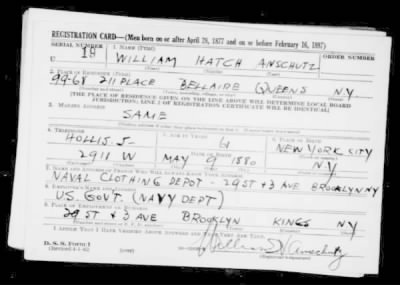 REGISTRATION CARD—(Men born on or after April 28, 1877 and on or before February 16, 1897)
SERIAL NUMBER 1. NAME (Print) ORDER NUMBER
U 19 WILLIAM HATCH ANSCHUTZ
2. PLACE OF RESIDENCE (Print)
99-68 211 PLACE BELLAIRE QUEENS NY
[THE PLACE OF RESIDENCE GIVEN ON THE LINE ABOVE WILL DETERMINE LOCAL BOARD
JURISDICTION; LINE 2 OF REGISTRATION CERTIFICATE WILL BE IDENTICAL]
3. MAILING ADDRESS
SAME
4. TELEPHONE 5. AGE IN YEARS 6. PLACE OF BIRTH
HOLLIS 5- 61 NEW YORK CITY
2911 W MAY 9 1880 NY
7. NAME AND ADDRESS OF PERSON WHO WILL ALWAYS KNOW YOUR ADDRESS
NAVAL CLOTHING DEPOT - 29 ST + 3 AVE BROOKLYN NY
8. EMPLOYER'S NAME AND ADDRESS
US. GOVT. (NAVY DEPT)
9. PLACE OF EMPLOYMENT OR BUSINESS
29 ST + 3 AVE BROOKLYN KINGS NY
I AFFIRM THAT I HAVE VERIFIED ABOVE ANSWERS AND THAT THEY ARE TRUE.
D. S. S. Form 1
(Revised 4-1-42) (over)
William H Anschutz
(Registrant's signature)